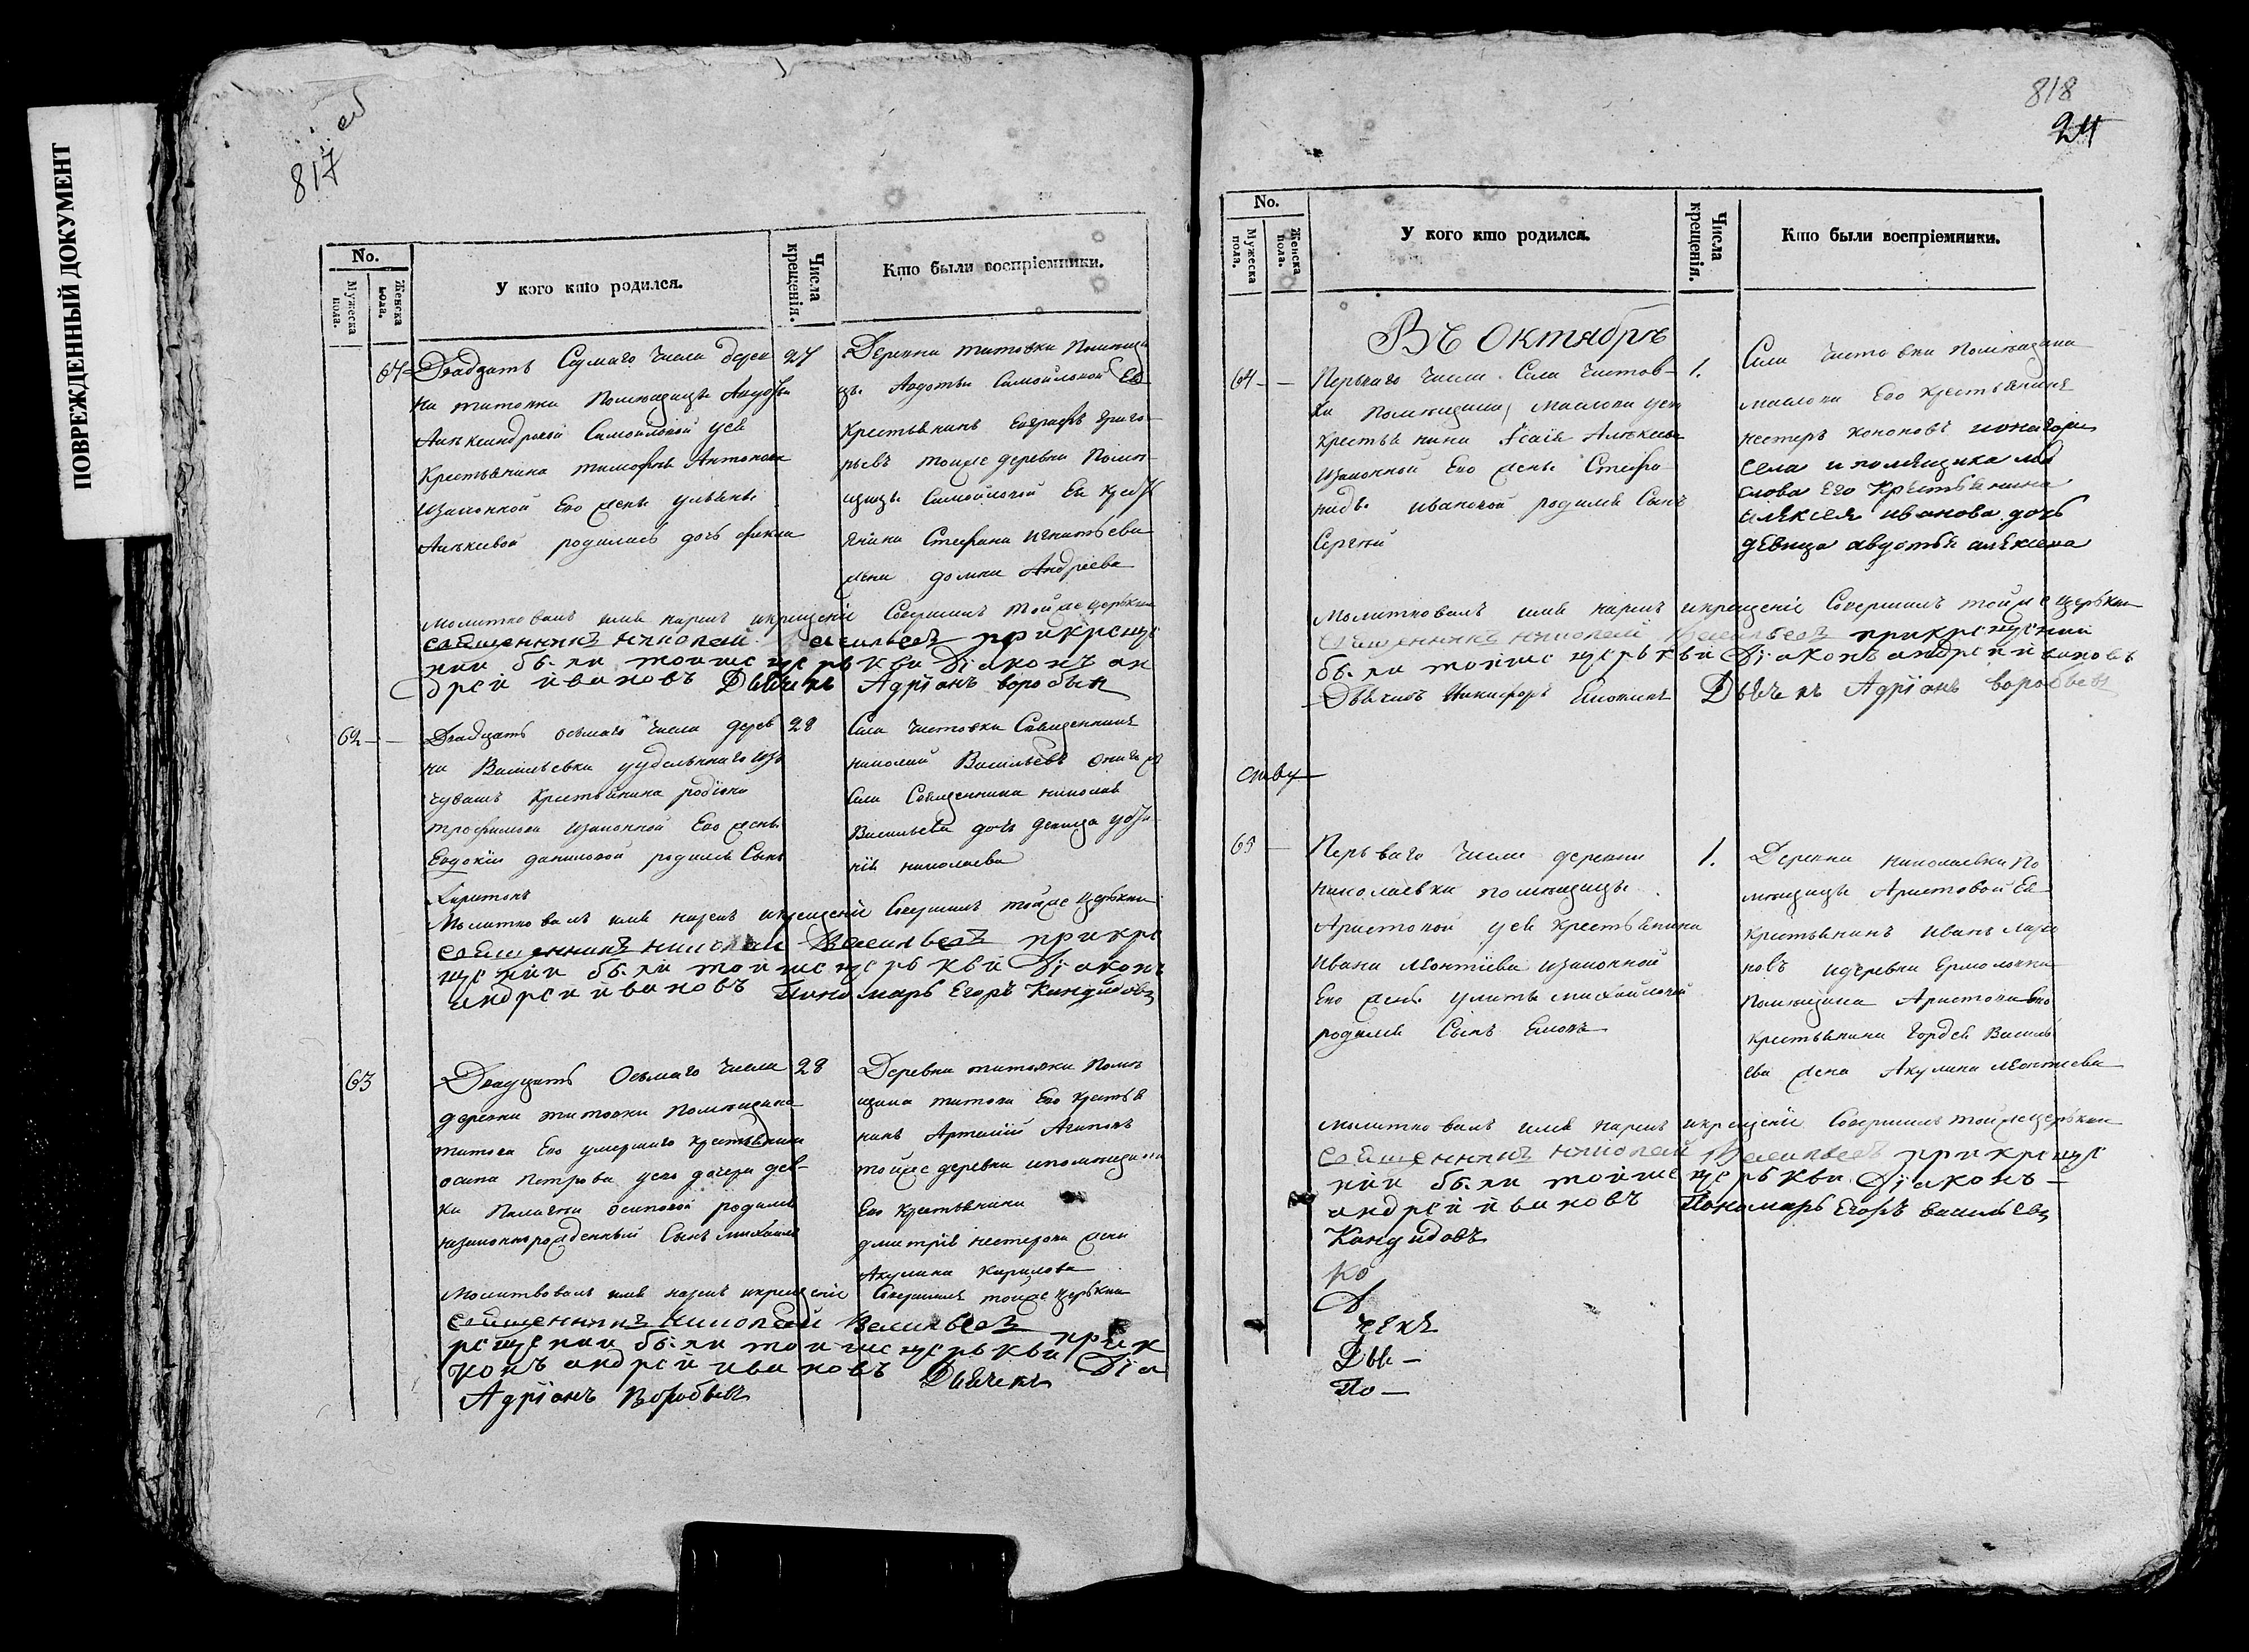 ПОВРЕЖДЕННЫЙ ДОКУМЕНТ
817
No.
Мужеска пола.
Женска пола.
У кого кто родился.
Числа крещенія.
Кто были воспріемники.
Двадцать Седмаго Числа дерев
27
ки титовки Помѣщицы
Александровой Самойловой у ея
Крестьянина тимофея Антонова
Изаконной Его жены ульяны
Алексевой родилась дочь
Деревни титовки Помѣщи
цы Авдотьи Самойловой Ея
Крестьянинъ Евграфъ Григо-
рьевъ тойже деревни Помѣ-
щицы Самойловой Ея
Стефана Игнатьева
жена домна Андреева
Молитвовалъ имя нарекъ икрещеніе Совершилъ тойже церькви
священникъ николай Васильевъ прикреще
нии были тоиже церькви Діаконъ ан
дреи ивановъ Дьячекъ Адріанъ воробьев
62
Двадцать осьмаго Числа дерев
28
ни Васильевки удельнаго изъ
Чувашъ Крестьянина родіона
трофимова изаконной Его жены
Евдокіи даниловой родился Сынъ
Харитонъ
Села Чистовки Священникъ
николай Васильевъ онагож
Села Священника николая
Васильева дочь девица
николаева
Молитвовалъ имя нарекъ икрещеніе Совершилъ тойже церькви
священникъ николай Васильевъ прикре
щении были тоиже церькви Діаконъ
андреи ивановъ Пономарь Егоръ Кандидовъ
63
Двадцать Осьмаго Числа
28
деревни титовки Помѣщика
титова Его умершаго Крестьянина
осипа Петрова усго дочери дев-
ки Палагеи осиповой родился
незаконнорожденный Сынъ Михаилъ
Деревни титовки Помѣ
щика титова Его крестья
нинъ Артемій Агаповъ
тойже деревни ипомещика
Его Крестьянина
дмитрія нестерова жена
Акулина Кирилова
Молитвовалъ имя нарекъ икрещеніе Совершилъ тойже церькви
священникъ николай Васильевъ прик
рещении были тоиже церькви Діа
конъ андреи ивановъ Дьячекъ
Адріанъ Воробьев
818
24
No.
Мужеска пола.
Женска пола.
У кого кто родился.
Числа крещенія.
Кто были воспріемники.
Въ Октябрѣ
64
Перьваго Числа Села Чистов-
1.
ки Помѣщика Маслова усго
Крестьянина Ісаія Алексѣева
Изаконной Его жены Стефа-
ниды ивановой родился Сынъ
Сергей
Села Чистовки Помѣщика
маслова Его Крестьянинъ
нестеръ Кононовъ
села и помѣщика мас
слова его Крестьянина
алексея иванова дочь
девица авдотья алексева
Молитвовалъ имя нарекъ икрещеніе Совершилъ тойже церькви
священникъ николай Васильевъ прикрещении
были тоиже церькви Діаконъ андреи ивановъ
Дьячекъ Никифоръ Дьячекъ Адріанъ Воробьевъ
65
Перьваго Числа деревни
1.
николаевки помѣщицы
Аристовой у ея Крестьянина
Ивана Леонтіева изаконной
Его жены улиты михайловой
родился Сынъ
Деревни николаевки По
мѣщицы Аристовой Ея
Крестьянинъ Иванъ
новъ идеревни Ермоловки
Помѣщика Аристова Его
Крестьянина Гордея Василь
ева жена Акулина Леонтиева
Молитвовалъ имя нарекъ икрещеніе Совершилъ тойжецерькви
священникъ николай Васильевъ прикреще
нии были тоиже церькви Діаконъ
андреи ивановъ Пономарь Егоръ васильевъ
Кандидовъ
Ко
Д
чекъ
Дья-
По-